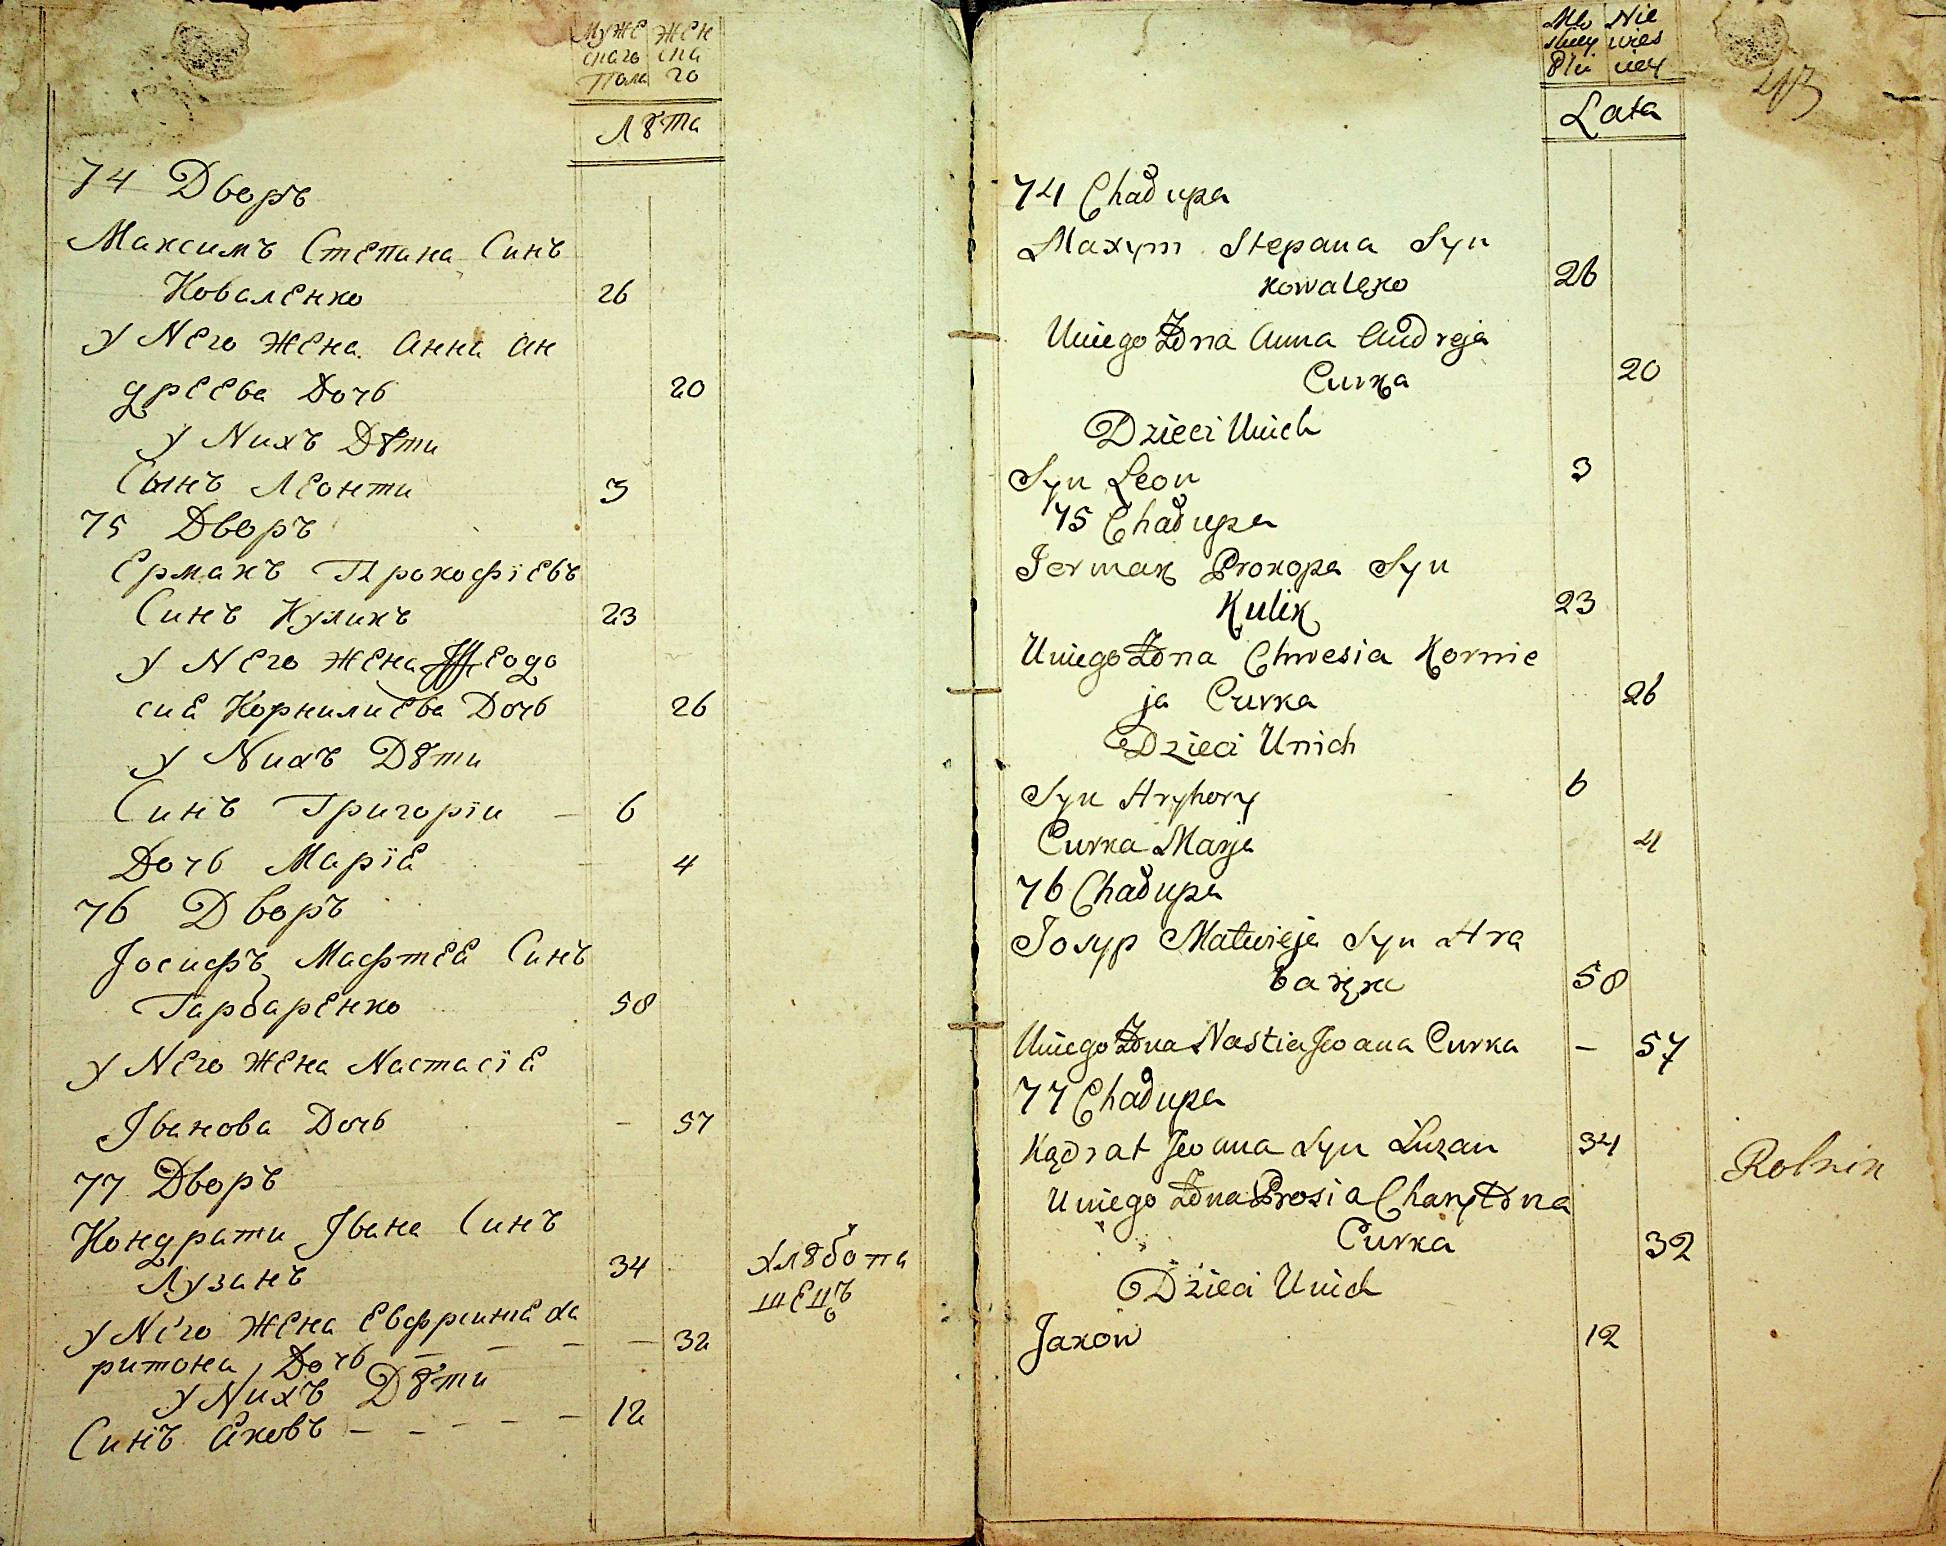 Муже ЖЕН
скаго ска
Пола го
Лѣта
74 Дворъ
Максимъ Степана Синъ
Коваленко 26
у Него жена Анна Ан
дреева Дочь 20
у Нихъ Дѣти
Сынъ Леонти 3
75 Дворъ
Ермакъ Прокофіевъ
Синъ Куликъ 23
у Него жена Феодо
сиа Корнилиева Дочь 26
у Нихъ Дѣти
Синъ Григоріи 6
Дочь Маріа 4
76 Дворъ
Іосифъ Мафтеа Синъ
Гарбаренко 58
у Него жена Настасіа
Іванова Дочь - 57
77 Дворъ
Кондрати Івана Синъ
Лузанъ 34 хлѣбопа
шецъ
у Него жена Евфриниа Ха
ритона Дочь - - - - 32
у Нихъ Дѣти
Синъ Аковъ - - - - - 12
Mę Nie
skiey wies
Płci ciey
Lata
74 Chałupa
Maxym Stepana Syn
Kowalęko 26
Uniego Żona Anna Andreja
Curka 20
Dzieci Unich
Syn Leon 3
75 Chałupa
Jermak Prokopa Syn
Kulik 23
Uniego Żona Chwesia Kornie
ja Curka 26
Dzieci Unich
Syn Hryhory 6
Curka Marja 4
76 Chałupa
Josyp Matwieja Syn Hra
58
Uniego Żona Nastia Jwana Curka - 57
77 Chałupa
Kądrat Jwana Syn Łuzan 34
Rolnik
Uniego Żona Prosia Charytona
Curka 32
Dzieci Unich
Jakow 12